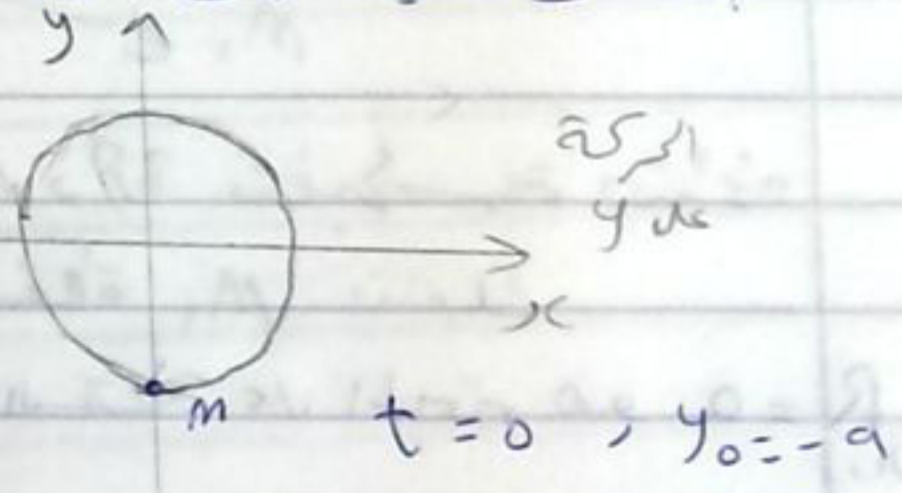 y
الحركة
على y
x
m
t = 0 , y₀ = -a